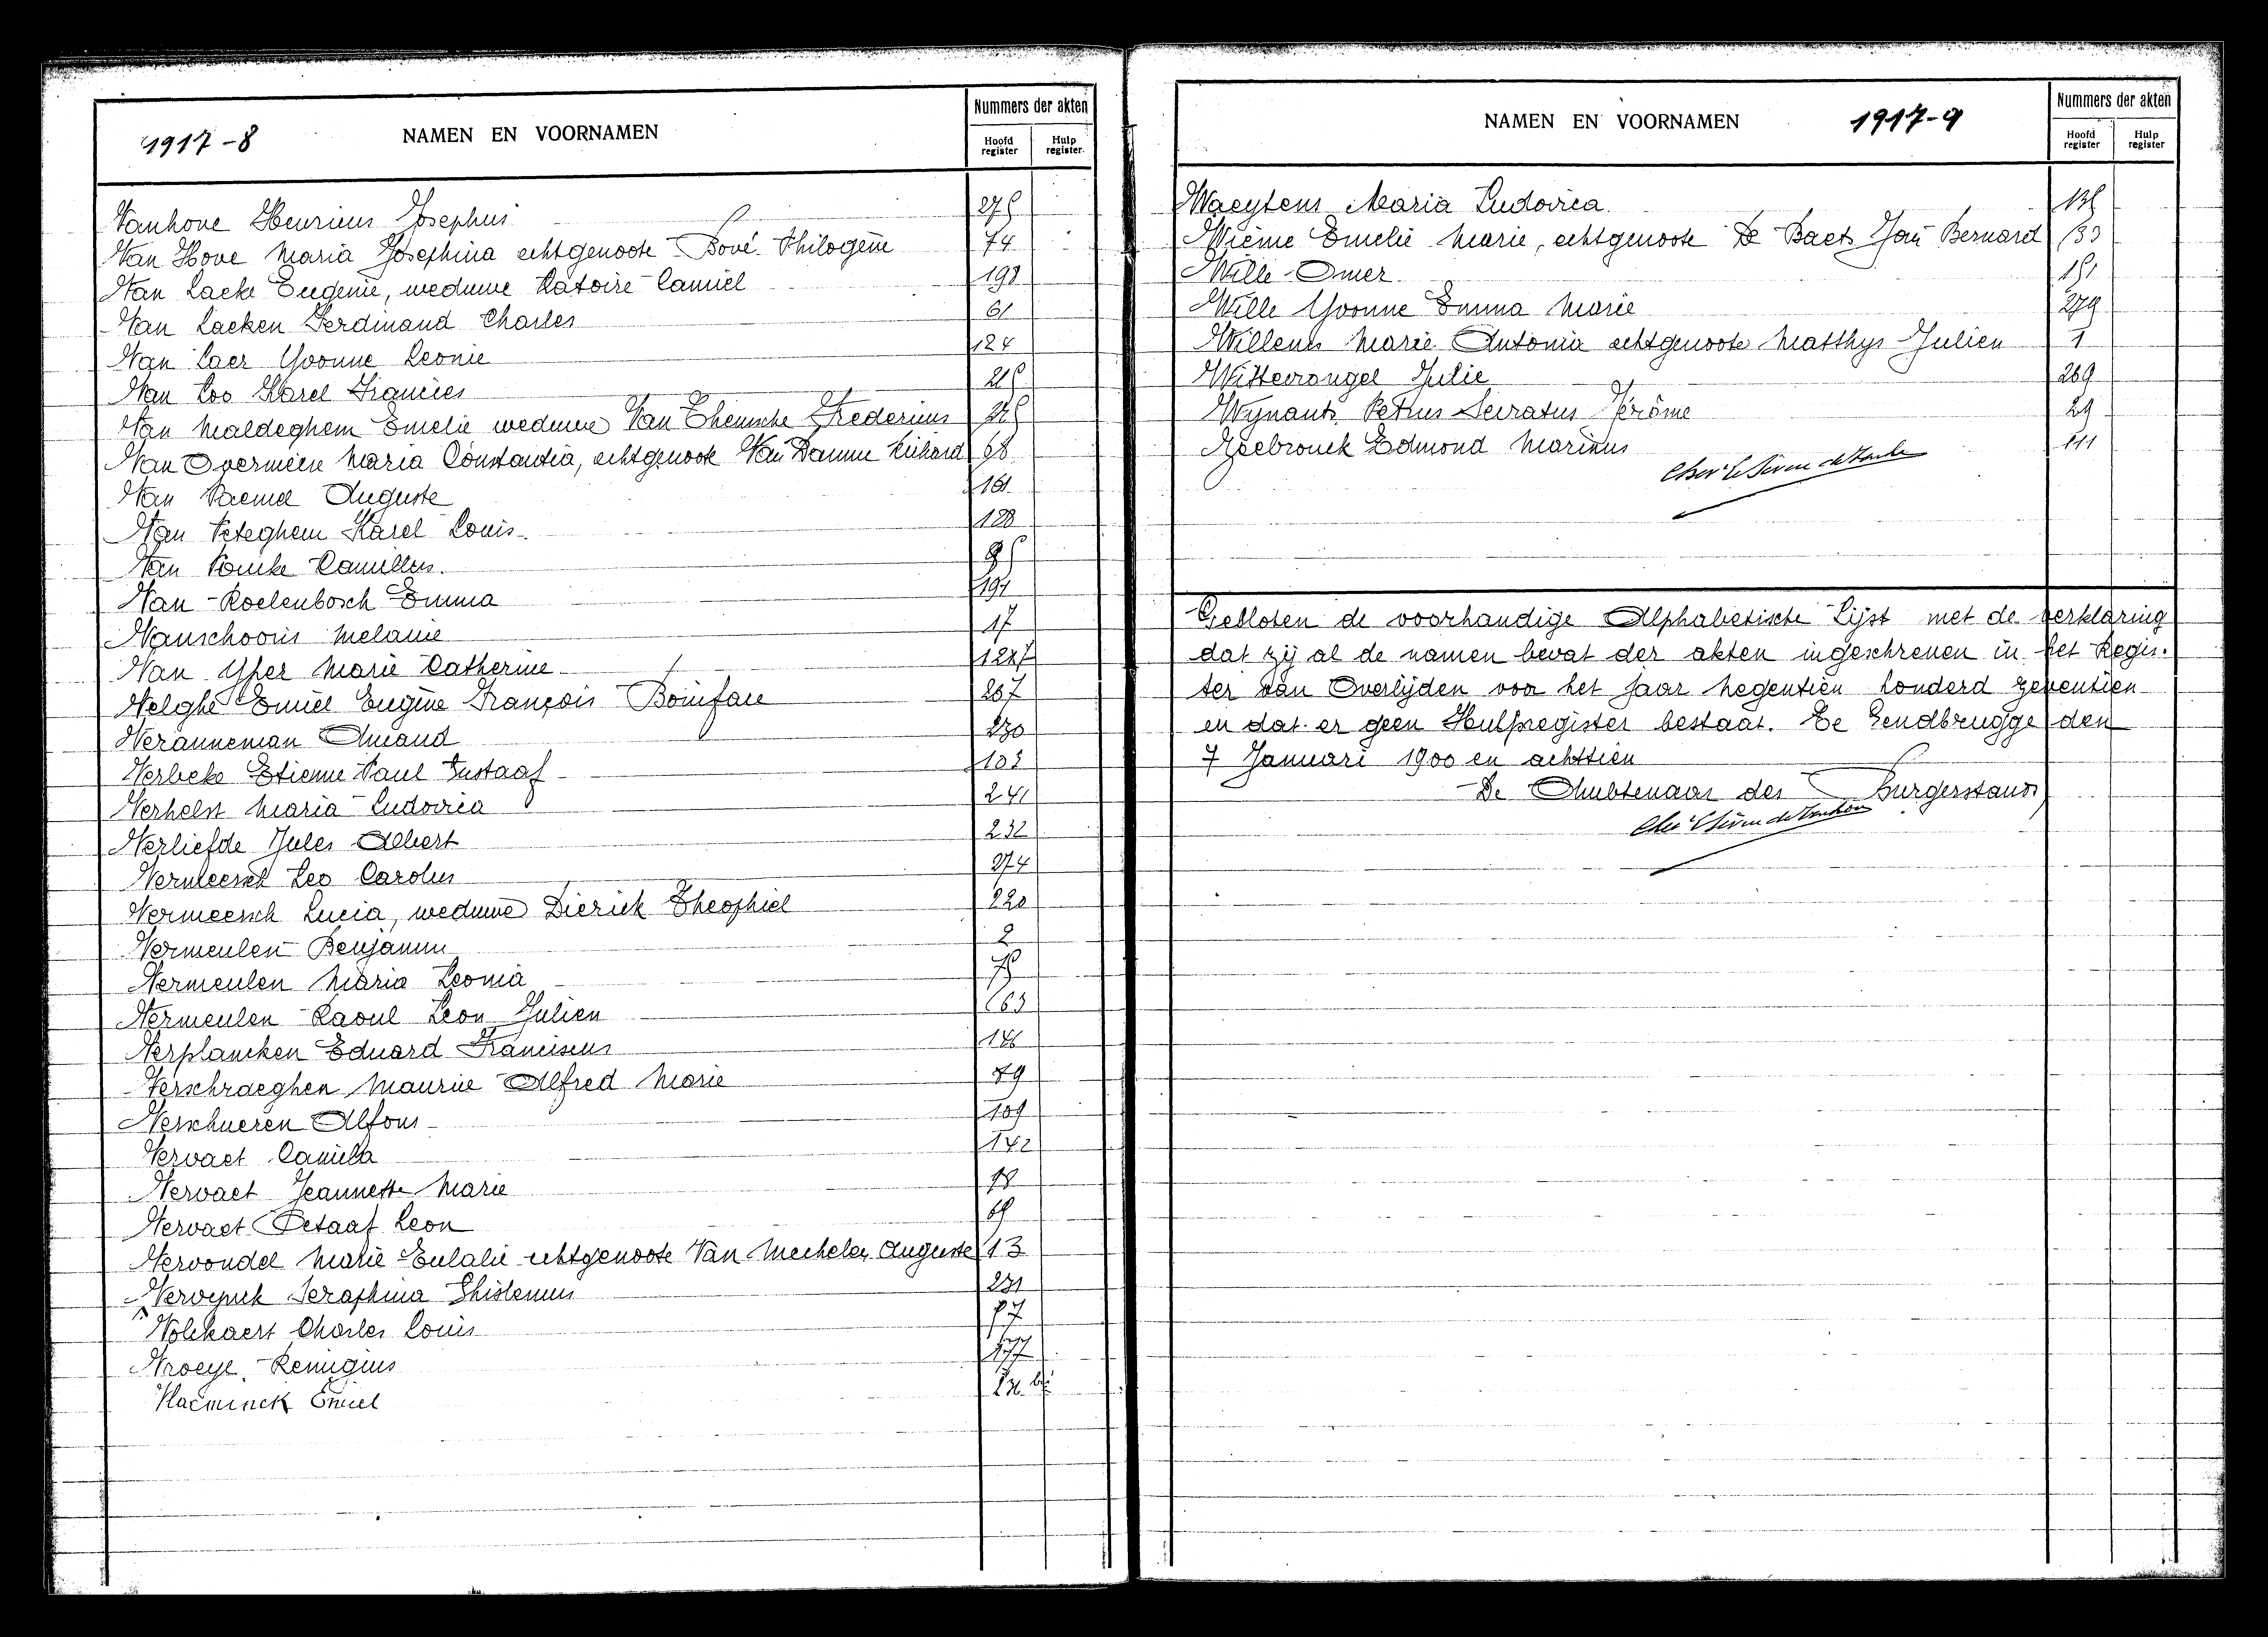 1917-8 NAMEN EN VOORNAMEN
Nummers der akten
Hoofd register
Hulp register
Vanhove Henricus Josephus 275
Van Hove Maria Josephina echtgenoote Bové Philogène 74
Van Laeke Eugenie, weduwe Latoire Camiel 198
Van Laeken Ferdinand Charles 61
Van Laer Yvonne Leonie 124
Van Loo Karel Francies 215
Van Maldeghem Emelie weduwe Van Themsche Fredericus
Van Overmeire Maria Constantia, echtgenoote Van Damme Richard 68
Van Paemel Auguste 161
Van Peteghem Karel Louis 128
Van Poucke Camillus 95
Van Roelenbosch Emma 191
Vanschooris Melanie 17
Van Yper Marie Catherine
Velghe Emiel Eugène François Boniface 267
Veranneman Amand 230
Verbeke Etienne Paul Gustaaf 103
Verhelst Maria Ludovica 241
Verliefde Jules Albert 232
Vermeersch Leo Carolus 274
Vermeersch Lucia, weduwe Dierick Theophiel 220
Vermeulen Benjamin 2
Vermeulen Maria Leonia 75
Vermeulen Raoul Leon Julien 163
Verplancken Eduard Franciscus 146
Verschraeghen Maurice Alfred Marie 49
Verschueren Alfons 109
Vervaet Camilla 142
Vervaet Jeannette Marie 18
Vervaet Petaaf Leon 65
Vervondel Marie Eulalie echtgenoote Van Mechelen Auguste 13
Vervynck Seraphina Ghislenus 231
Volckaert Charles Louis 87
Vroeye Remigius 177
Vlaeminck Emiel
NAMEN EN VOORNAMEN 1917-9
Nummers der akten
Hoofd register
Hulp register
Waeytens Maria Ludovica 135
Wième Emelie Marie, echtgenoote De Baets Jan Bernard 133
Wille Omer 151
Wille Yvonne Emma Marie 279
Willems Marie Antonia echtgenoote Matthys Julien 1
Wittevrongel Julie 269
Wynants Petrus Servatus Jérôme 29
Ysebrouck Edmond Marinus 111
Gesloten de voorhandige Alphabetische Lijst met de verklaring
dat zij al de namen bevat der akten ingeschreven in het Regis-
ter van Overlijden voor het jaar Negentien honderd zeventien
en dat er geen Hulpregister bestaat. Te Gendbrugge den
7 Januari 1900 en achttien
De Ambtenaar des Burgerstands